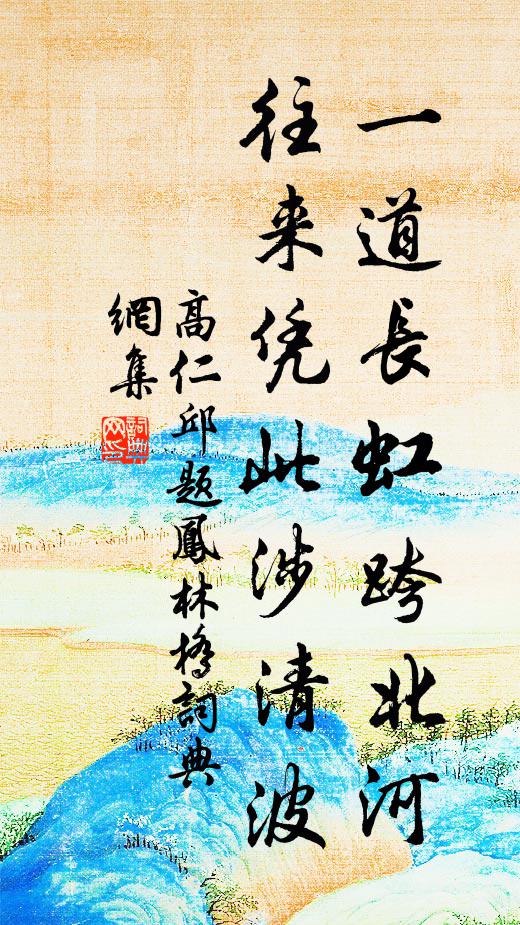 一道長虹跨北河
往来凭此涉清波
高仁邱題鳳林橋詞典
網集